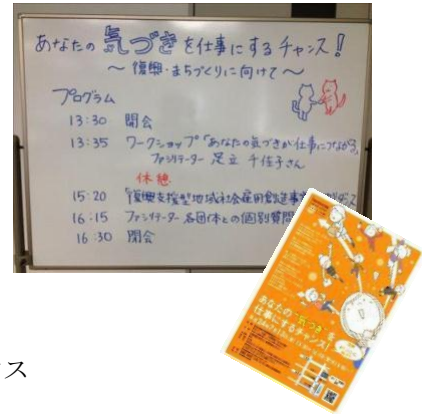 あなたの気づきを仕事にするチャンス!
〜復興・まちづくりに向けて〜
プログラム
13:30 開会
13:35 ワークショップ「あなたの気づきが仕事につながる」
ファシリテーター 足立 千佳子さん
休憩
15:20 「復興支援型地域社会雇用創造事業
16:15 ファシリテーター、各団体との個別質問
16:30 閉会
あなたの"気づき"を
仕事にするチャンス!
ス